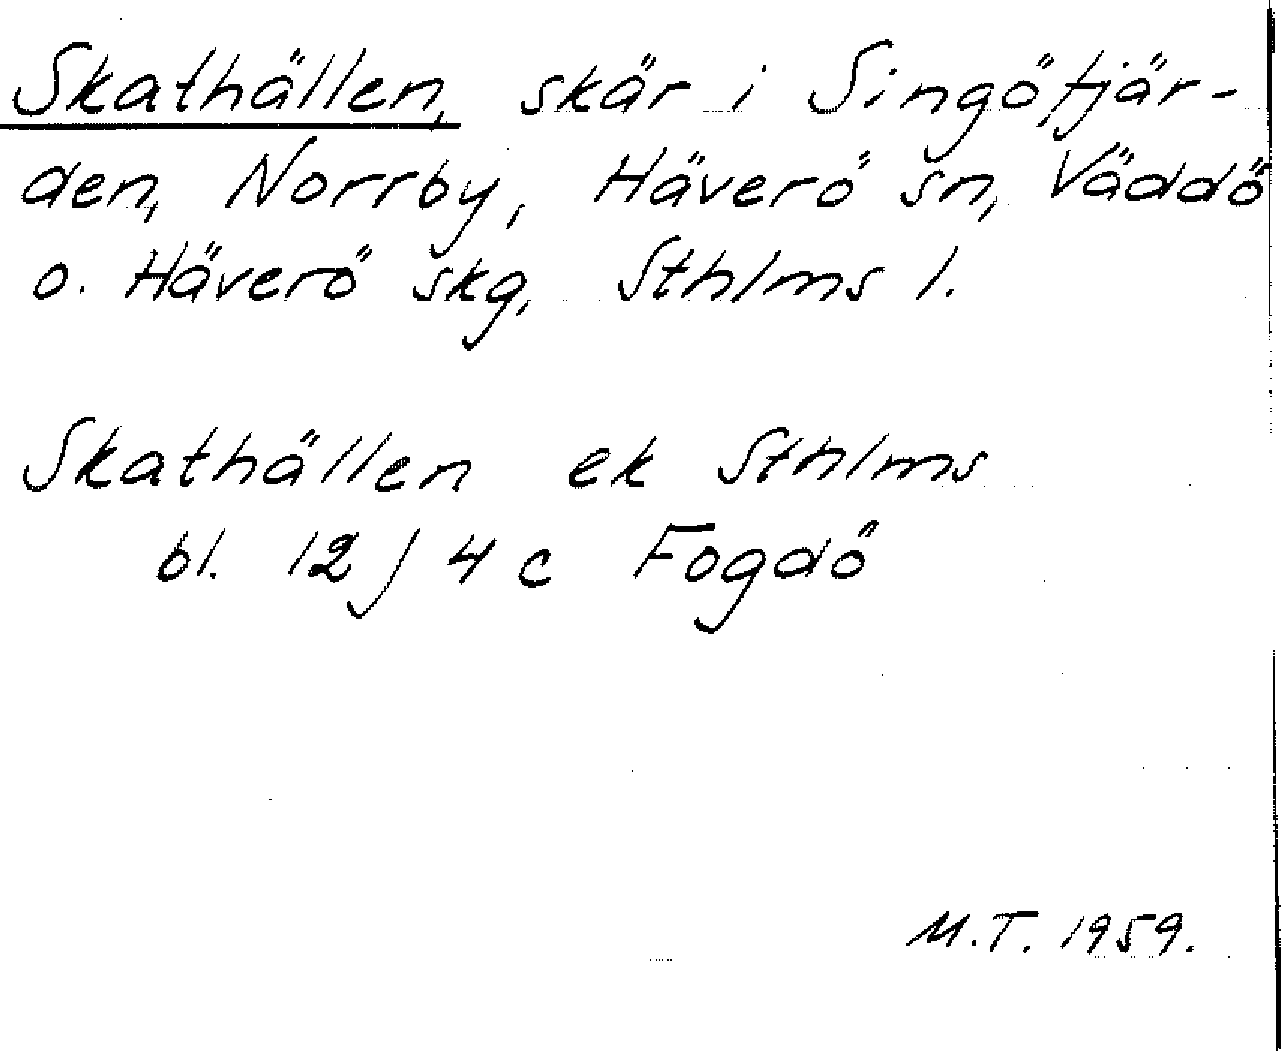 Skathällen, skär i Singöfjär-
den, Norrby, Häverö sn, Väddö
o. Häverö skg, Sthlms l.
Skathällen ek Sthlms
bl. 12 J 4 c Fogdö
M.T. 1959.